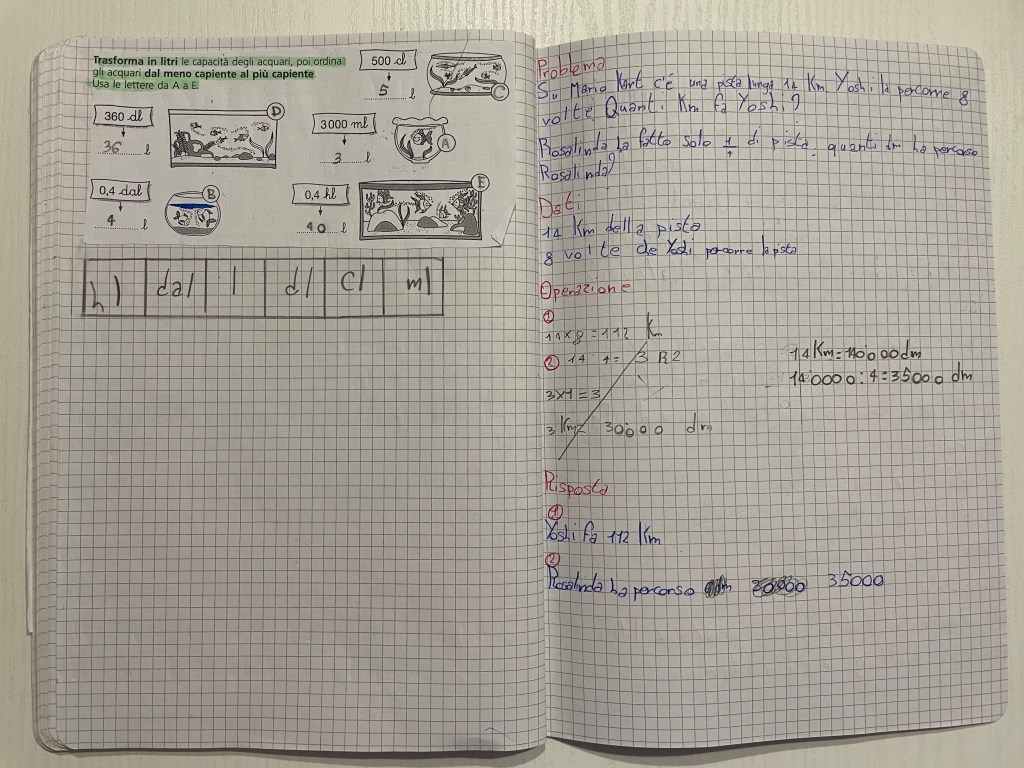 Trasforma in litri le capacità degli acquari, poi ordina
gli acquari dal meno capiente al più capiente.
Usa le lettere da A a E.
500 cl
5 l
C
360 dl
36 l
D
3000 ml
3 l
A
0,4 dal
4 l
B
0,4 hl
40 l
E
hl dal l dl cl ml
Problema
Su Mario Kart c'è una pista lunga 14 Km Yoshi la percorre 8
volte Quanti Km fa Yoshi?
Rosalinda ha fatto solo di pista. quanti dm ha percorso
Rosalinda?
Dati
14 Km della pista
8 volte che Yoshi percorre la pista
Operazione
1
14x8=112 Km
2 14 4= 3 R2
3x1=3
3 Km= 30000 dm
14Km=140000dm
140000:4=35000 dm
Risposta
1
Yoshi fa 112 Km
2
Rosalinda ha percorso 35000